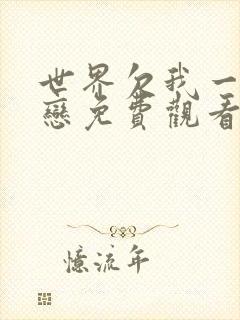 世界欠我一
戀免費觀看
憶流年